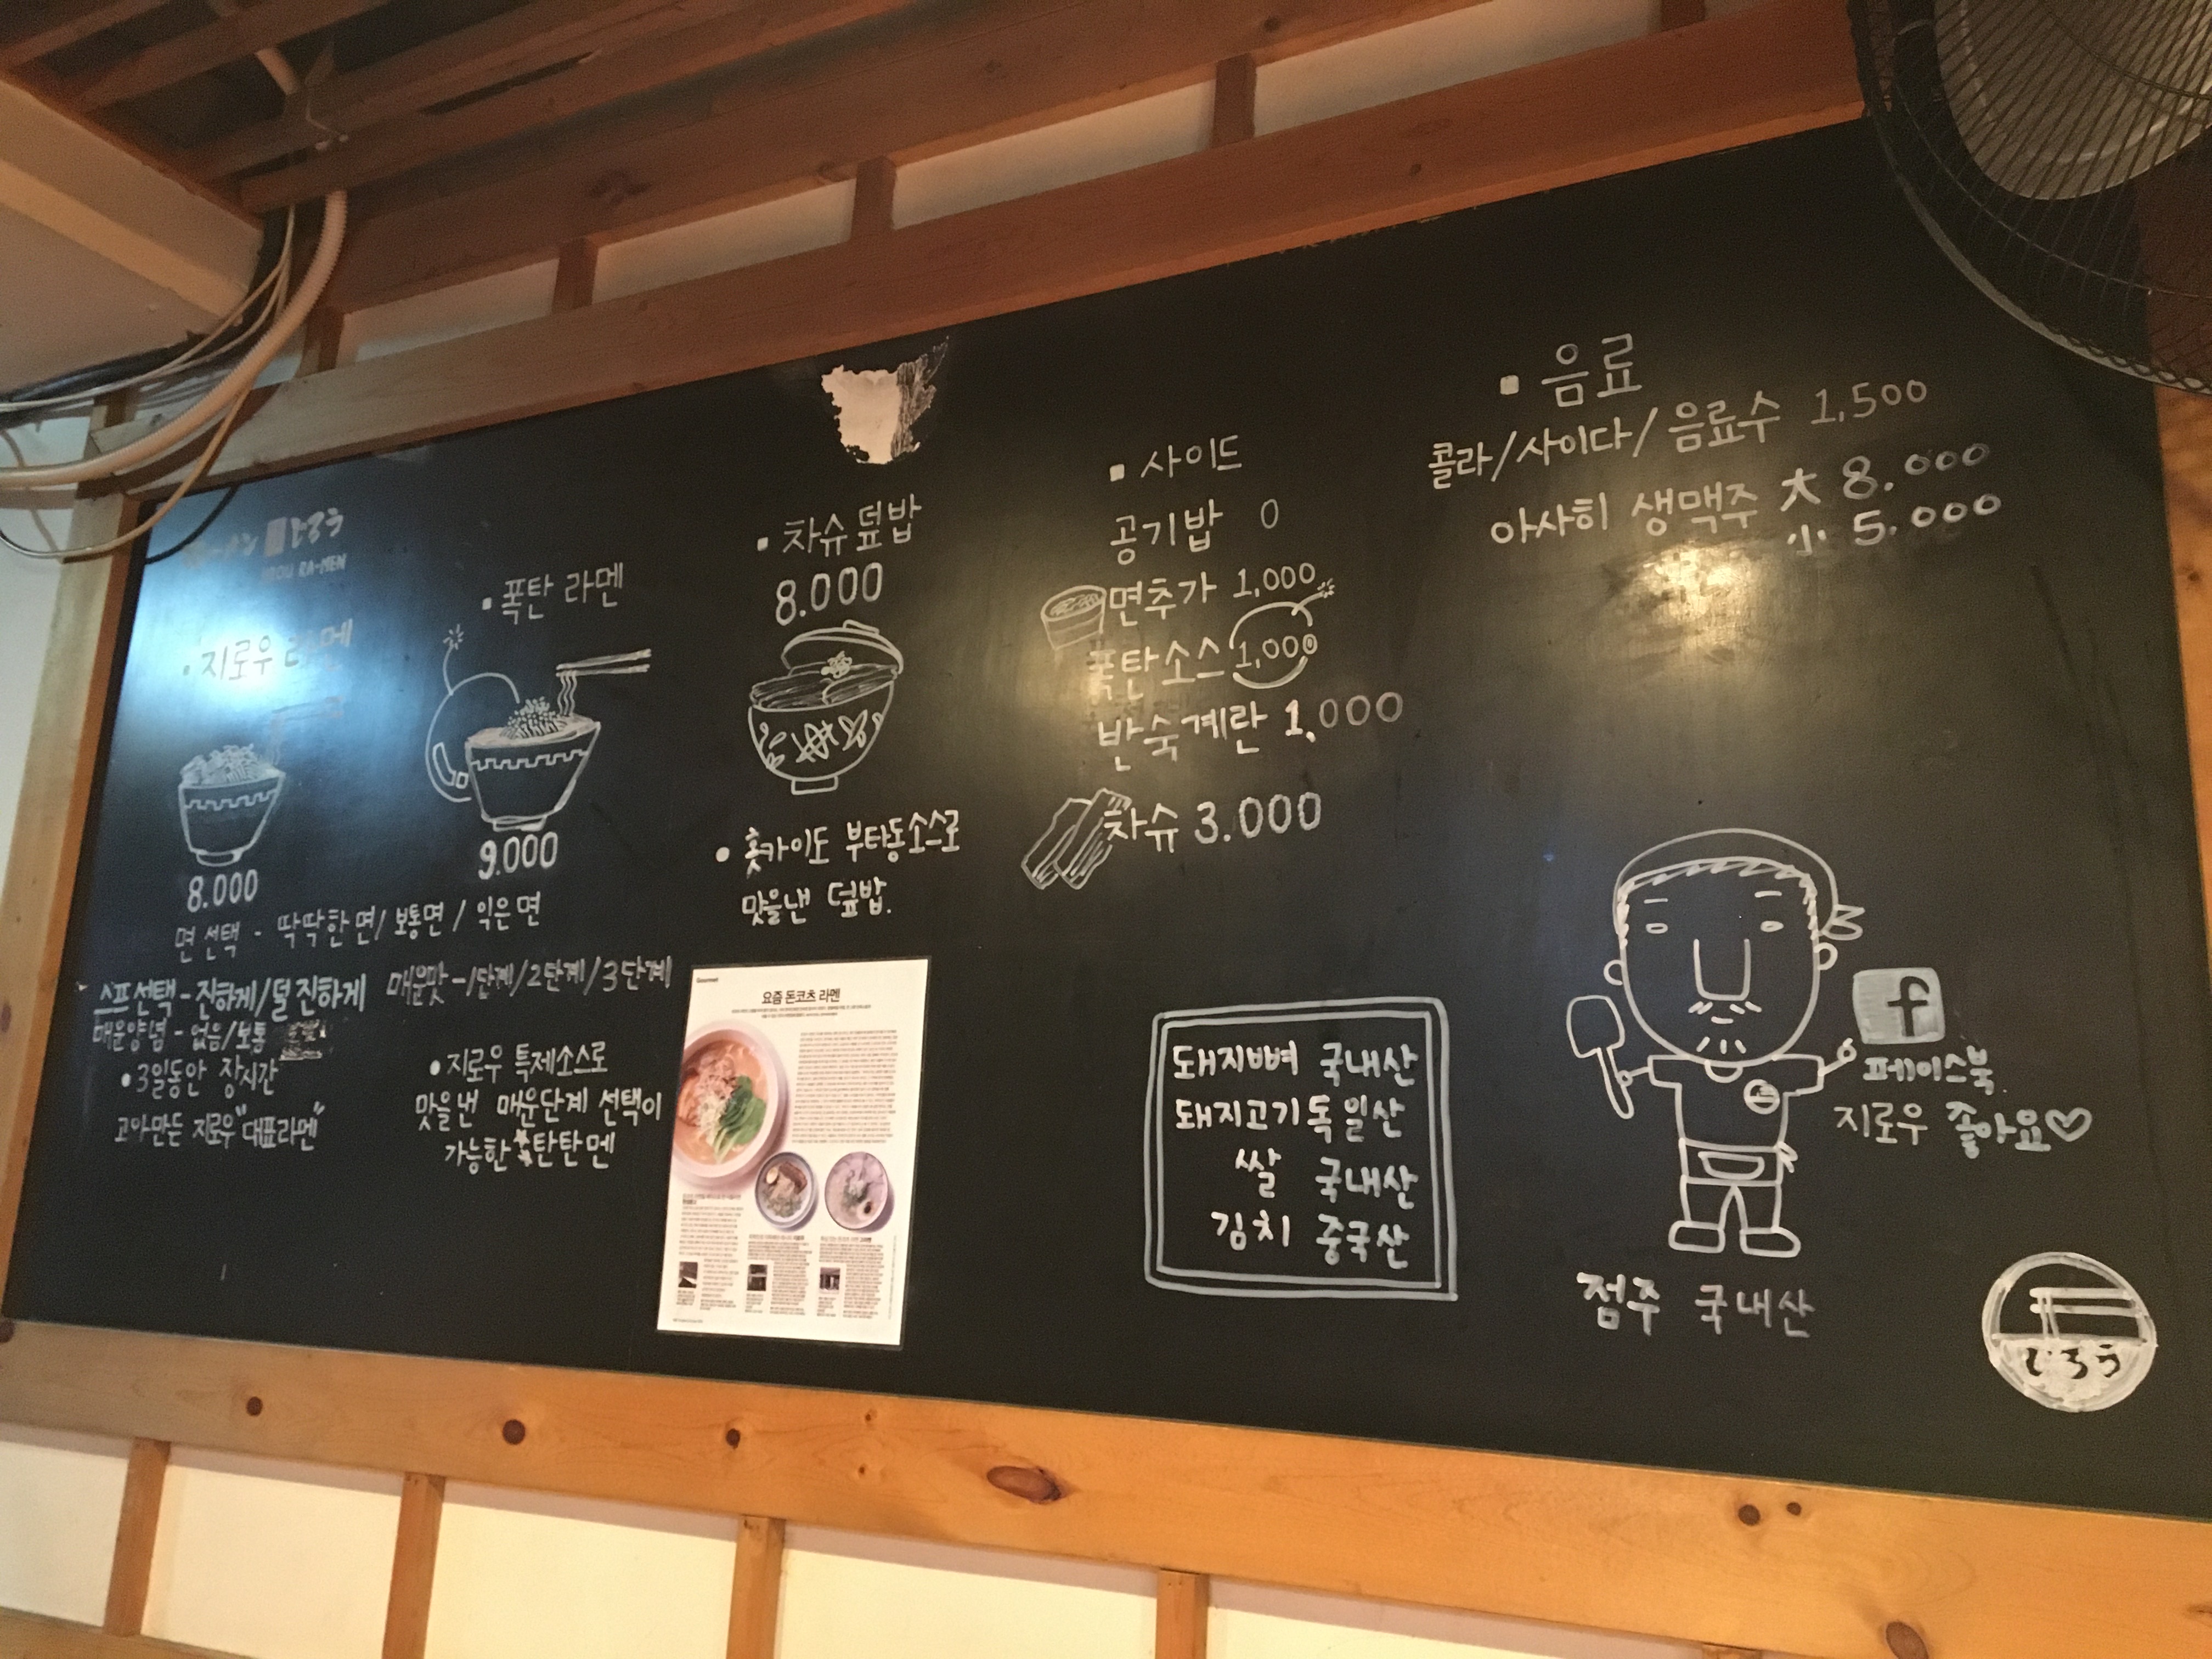 じろう
RA-MEN
▪ 지로우 라멘
8.000
▪ 폭탄 라멘
9.000
면 선택 - 딱딱한 면/ 보통면 / 익은면
스프선택 - 진하게/덜 진하게
매운맛 - 1단계/2단계/3단계
매운양념 - 없음/보통
• 3일동안 장시간
고아만든 지로우 "대표라멘"
• 지로우 특제소스로
맛을낸 매운단계 선택이
가능한 탄탄멘
▪ 차슈덮밥
8.000
• 홋카이도 부타동소스로
맛을낸 덮밥.
Gourmet
요즘 돈코츠 라멘
▪ 사이드
공기밥 0
면추가 1,000
폭탄소스 1,000
반숙계란 1,000
차슈 3.000
▪ 음료
콜라/사이다/음료수 1,500
아사히 생맥주 大 8.000
小 5.000
돼지뼈 국내산
돼지고기 독일산
쌀 국내산
김치 중국산
f
페이스북
지로우 좋아요♡
점주 국내산
じろう